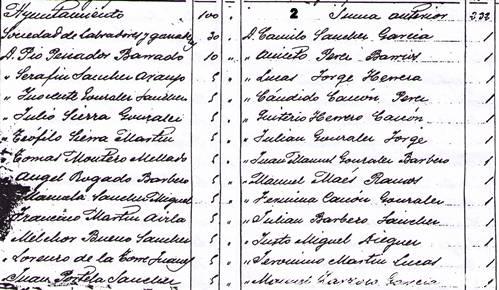 Ayuntamiento 100 "
Sociedad de Labradores y ganad 30 "
D. Pio Peinador Barrado 10 "
" Serafin Sanchez Araujo 5 "
" Inocente Gonzalez Sanchez 5 "
" Julio Sierra Gonzalez 5 "
" Teofilo Sierra Martin 5 "
" Tomas Montero Mellado 5 "
" Angel Rogado Barbero 5 "
" Manuela Sanchez Miguel 5 "
" Francisco Martin Avila 5 "
" Melchor Bueno Sanchez 5 "
" Lorenzo de la Torre Juanes 5 "
" Juan Portela Sanchez 5 "
2 Suma anterior
D. Camilo Sanchez Garcia 1
" Aniceto Perez Barrios 1
" Lucas Jorge Herrera 1
" Cándido Cascón Perez 1
" Quiterio Herrero Cascón 1
" Julian Gonzalez Jorge 1
" Juan Manuel Gonzalez Barbero 1
" Manuel Maés Ramos 1
" Fermina Cascón Gonzalez 1
" Julian Barbero Sanchez 1
" Justo Miguel 1
" Jeronimo Martin Lucas 1
" Garcia 1